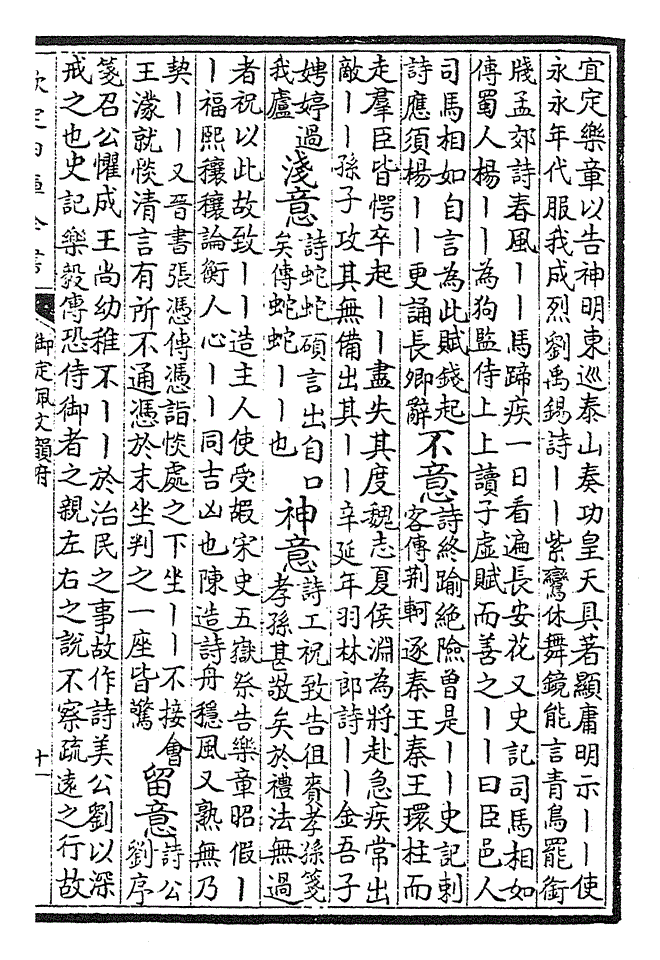 宜定樂章以告神明東巡泰山奏功皇天具著顯庸明示丨丨使
永永年代服我成烈劉禹錫詩丨丨紫鸞休舞鏡能言青鳥罷銜
牋孟郊詩春風丨丨馬蹄疾一日看遍長安花又史記司馬相如
傳蜀人楊丨丨為狗監侍上上讀子虛賦而善之丨丨曰臣邑人
司馬相如自言為此賦錢起
詩應須楊丨丨更誦長卿辭
不意
詩終踰絕險曾是丨丨史記刺
客傳荆軻逐秦王秦王環柱而
走羣臣皆愕卒起丨丨盡失其度魏志夏侯淵為將赴急疾常出
敵丨丨孫子攻其無備出其丨丨辛延年羽林郎詩丨丨金吾子
娉婷過
我廬
淺意
詩蛇蛇碩言出自口
矣傳蛇蛇丨丨也
神意
詩工祝致告徂賚孝孫箋
孝孫甚敬矣於禮法無過
者祝以此故致丨丨造主人使受嘏宋史五嶽祭告樂章昭假丨
丨福熙穰穰論衡人心丨丨同吉凶也陳造詩舟穩風又熟無乃
契丨丨又晉書張憑傳憑詣惔處之下坐丨丨不接會
王濛就惔清言有所不通憑於末坐判之一座皆驚
留意
詩公
劉序
箋召公懼成王尚幼稚不丨丨於治民之事故作詩美公劉以深
戒之也史記樂毅傳恐侍御者之親左右之説不察疏遠之行故
欽定四庫全書
御定佩文韻府
十一